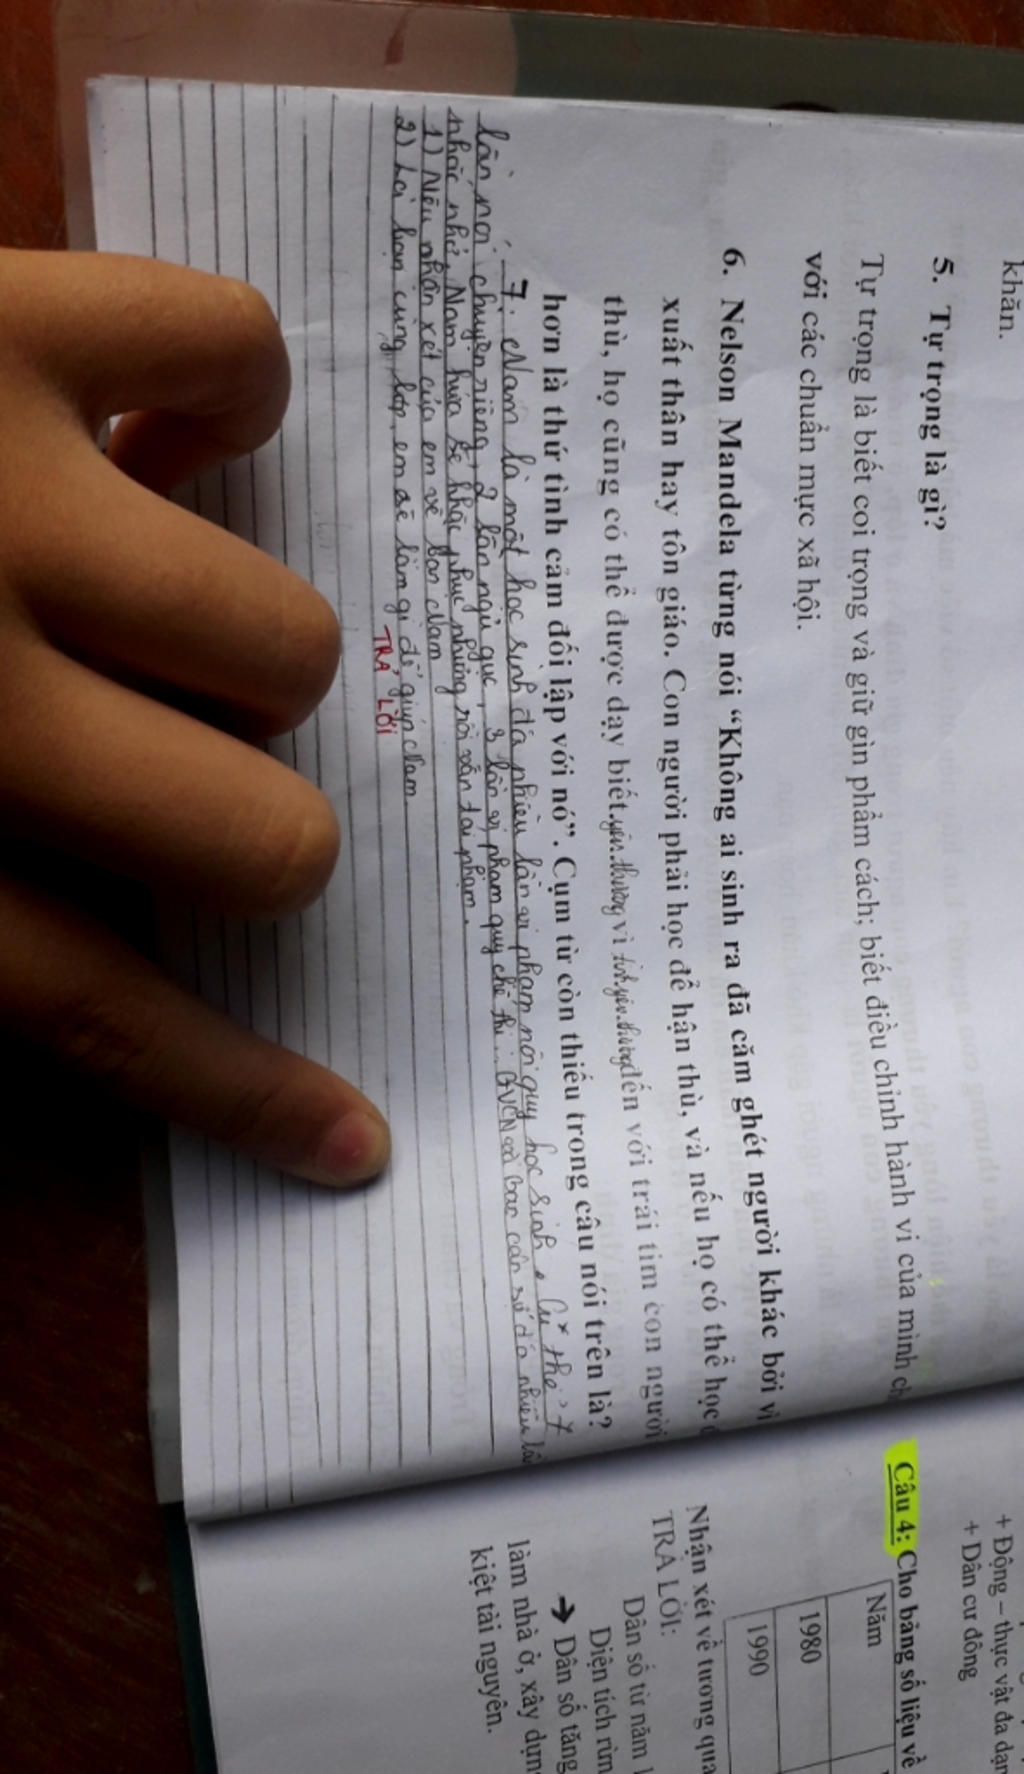 khăn.
5. Tự trọng là gì?
Tự trọng là biết coi trọng và giữ gìn phẩm cách; biết điều chỉnh hành vi của mình
với các chuẩn mực xã hội.
6. Nelson Mandela từng nói “Không ai sinh ra đã căm ghét người khác bởi vì
xuất thân hay tôn giáo. Con người phải học để hận thù, và nếu họ có thể học
thù, họ cũng có thể được dạy biết yêu thương vì tình yêu thương đến với trái tim con người
hơn là thứ tình cảm đối lập với nó”. Cụm từ còn thiếu trong câu nói trên là?
7. Nam là một học sinh đã nhiều lần vi phạm nội quy học sinh. Cụ thể: 7
lần nói chuyện riêng, 2 lần ngủ gục, 3 lần vi phạm quy chế thi... GVCN và ban cán sự đã nhiều lần
nhắc nhở, Nam hứa sẽ khắc phục nhưng rồi vẫn tái phạm.
1) Nêu nhận xét của em về bạn Nam
2) Là bạn cùng lớp, em sẽ làm gì để giúp Nam
TRẢ LỜI
+ Động – thực vật đa dạn
+ Dân cư đông
Câu 4: Cho bảng số liệu về
Năm
1980
1990
Nhận xét về tương qua
TRẢ LỜI:
Dân số từ năm 1
Diện tích rừn
➔ Dân số tăng
làm nhà ở, xây dựn
kiệt tài nguyên.